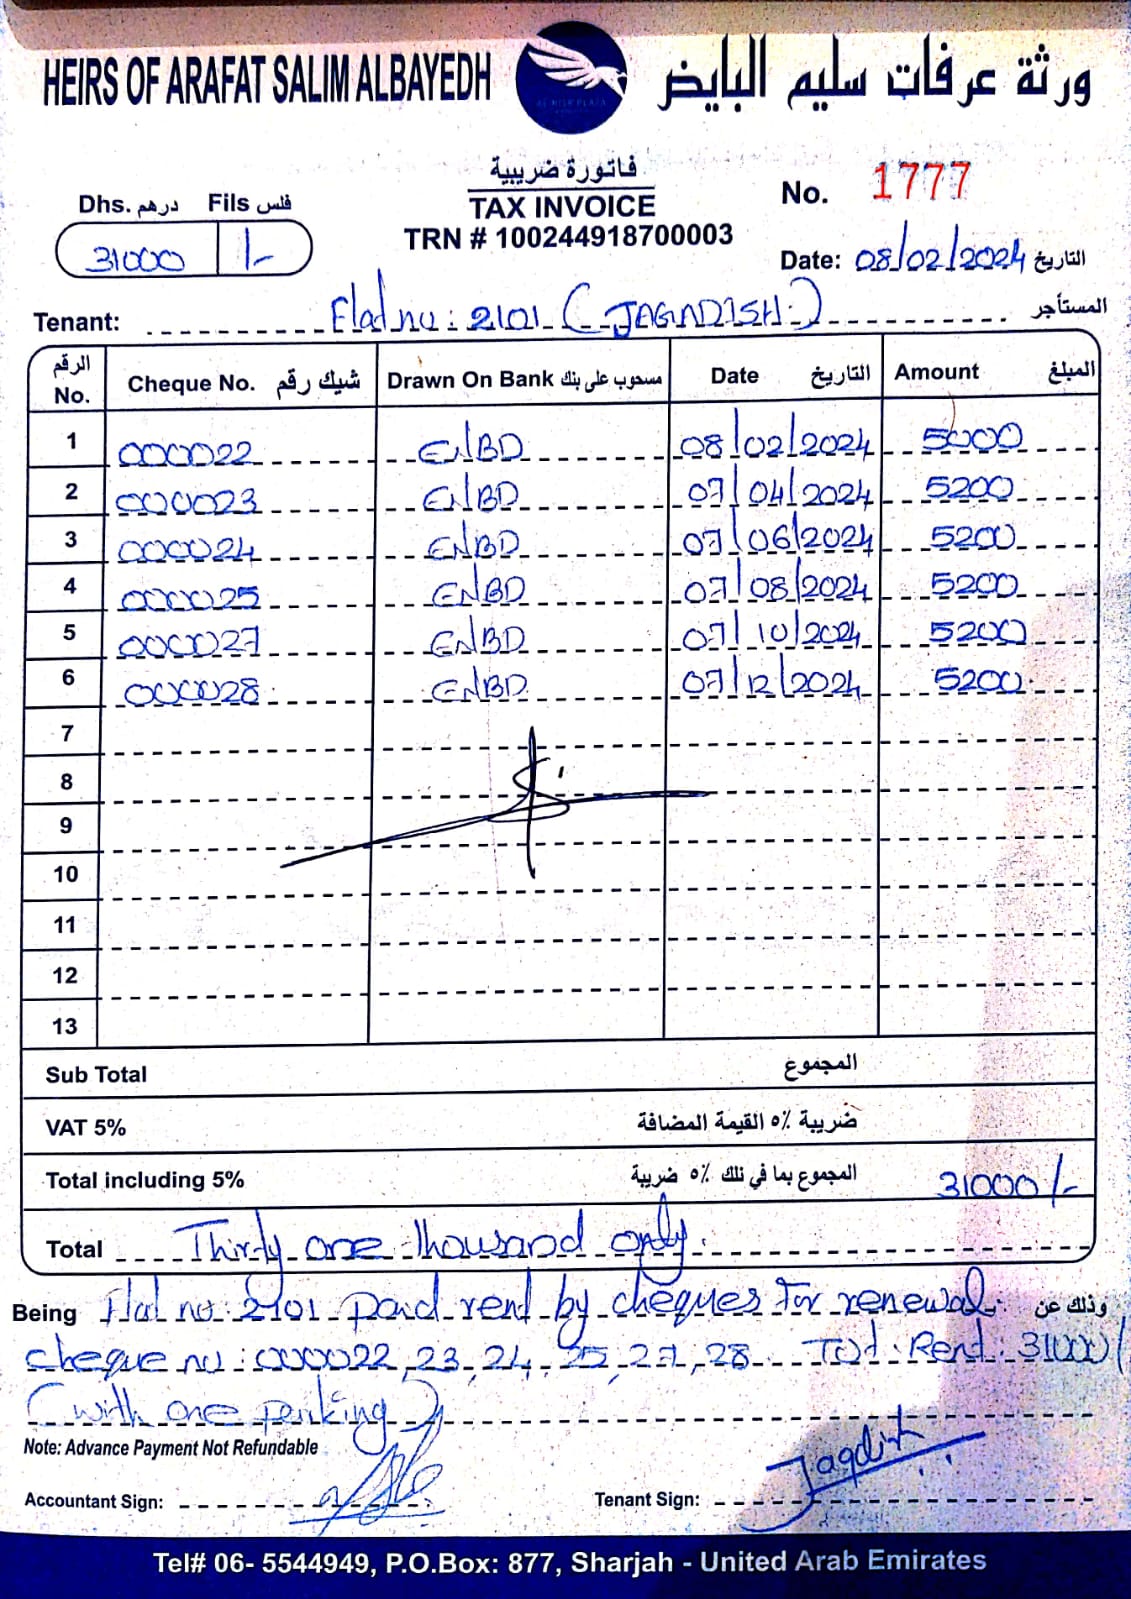 HEIRS OF ARAFAT SALIM ALBAYEDH
ورثة عرفات سليم البايض
فاتورة ضريبية
TAX INVOICE
TRN # 100244918700003
No. 1777
Dhs. درهم Fils فلس
31000 /-
Date: 08/02/2024 التاريخ
Tenant: Flat no : 2101 (JAGADISH) المستأجر
الرقم No. Cheque No. شيك رقم Drawn On Bank مسحوب على بنك Date التاريخ Amount المبلغ
1 000022 ENBD 08/02/2024 5000
2 000023 ENBD 07/04/2024 5200
3 000024 ENBD 07/06/2024 5200
4 000025 ENBD 07/08/2024 5200
5 000027 ENBD 07/10/2024 5200
6 000028 ENBD 07/12/2024 5200
7
8
9
10
11
12
13
Sub Total المجموع
VAT 5% ضريبة ٥% القيمة المضافة
Total including 5% المجموع بما في ذلك ٥% ضريبة 31000/-
Total Thirty one thousand only.
Being Flat no: 2101 paid rent by cheques for renewal. وذلك عن
cheque no : 000022, 23, 24, 25, 27, 28 Tot. Rent: 31000/
(with one parking)
Note: Advance Payment Not Refundable
Accountant Sign:
Tenant Sign: Jagdish
Tel# 06- 5544949, P.O.Box: 877, Sharjah - United Arab Emirates